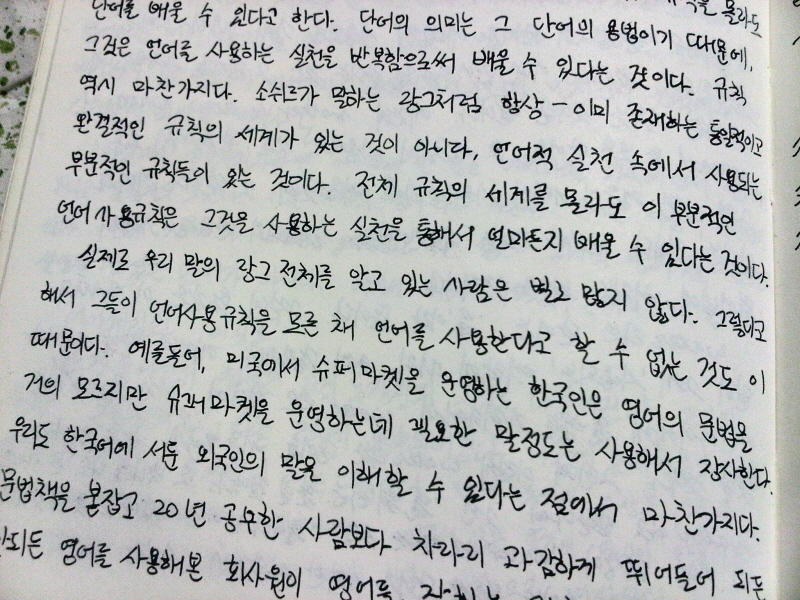 단어를 배울 수 있다고 한다. 단어의 의미는 그 단어의 용법이기 때문에, 몰라도
그것은 언어를 사용하는 실천을 반복함으로써 배울 수 있다는 것이다. 규칙
역시 마찬가지다. 소쉬르가 말하는 랑그처럼 항상-이미 존재하는 통일적이고
완결적인 규칙의 세계가 있는 것이 아니다, 언어적 실천 속에서 사용되는
부분적인 규칙들이 있는 것이다. 전체 규칙의 세계를 몰라도 이 부분적인
언어사용규칙은 그것을 사용하는 실천을 통해서 얼마든지 배울 수 있다는 것이다.
실제로 우리 말의 랑그 전체를 알고 있는 사람은 별로 많지 않다. 그렇다고
해서 그들이 언어사용규칙을 모른 채 언어를 사용한다고 할 수 없는 것도 이
때문이다. 예를들어, 미국에서 슈퍼마켓을 운영하는 한국인은 영어의 문법을
거의 모르지만 슈퍼마켓을 운영하는데 필요한 말정도는 사용해서 장사한다.
우리도 한국어에 서툰 외국인의 말을 이해할 수 있다는 점에서 마찬가지다.
문법책을 붙잡고 20년 공부한 사람보다 차라리 과감하게 뛰어들어 되든
안되든 영어를 사용해본 회사원이 영어를